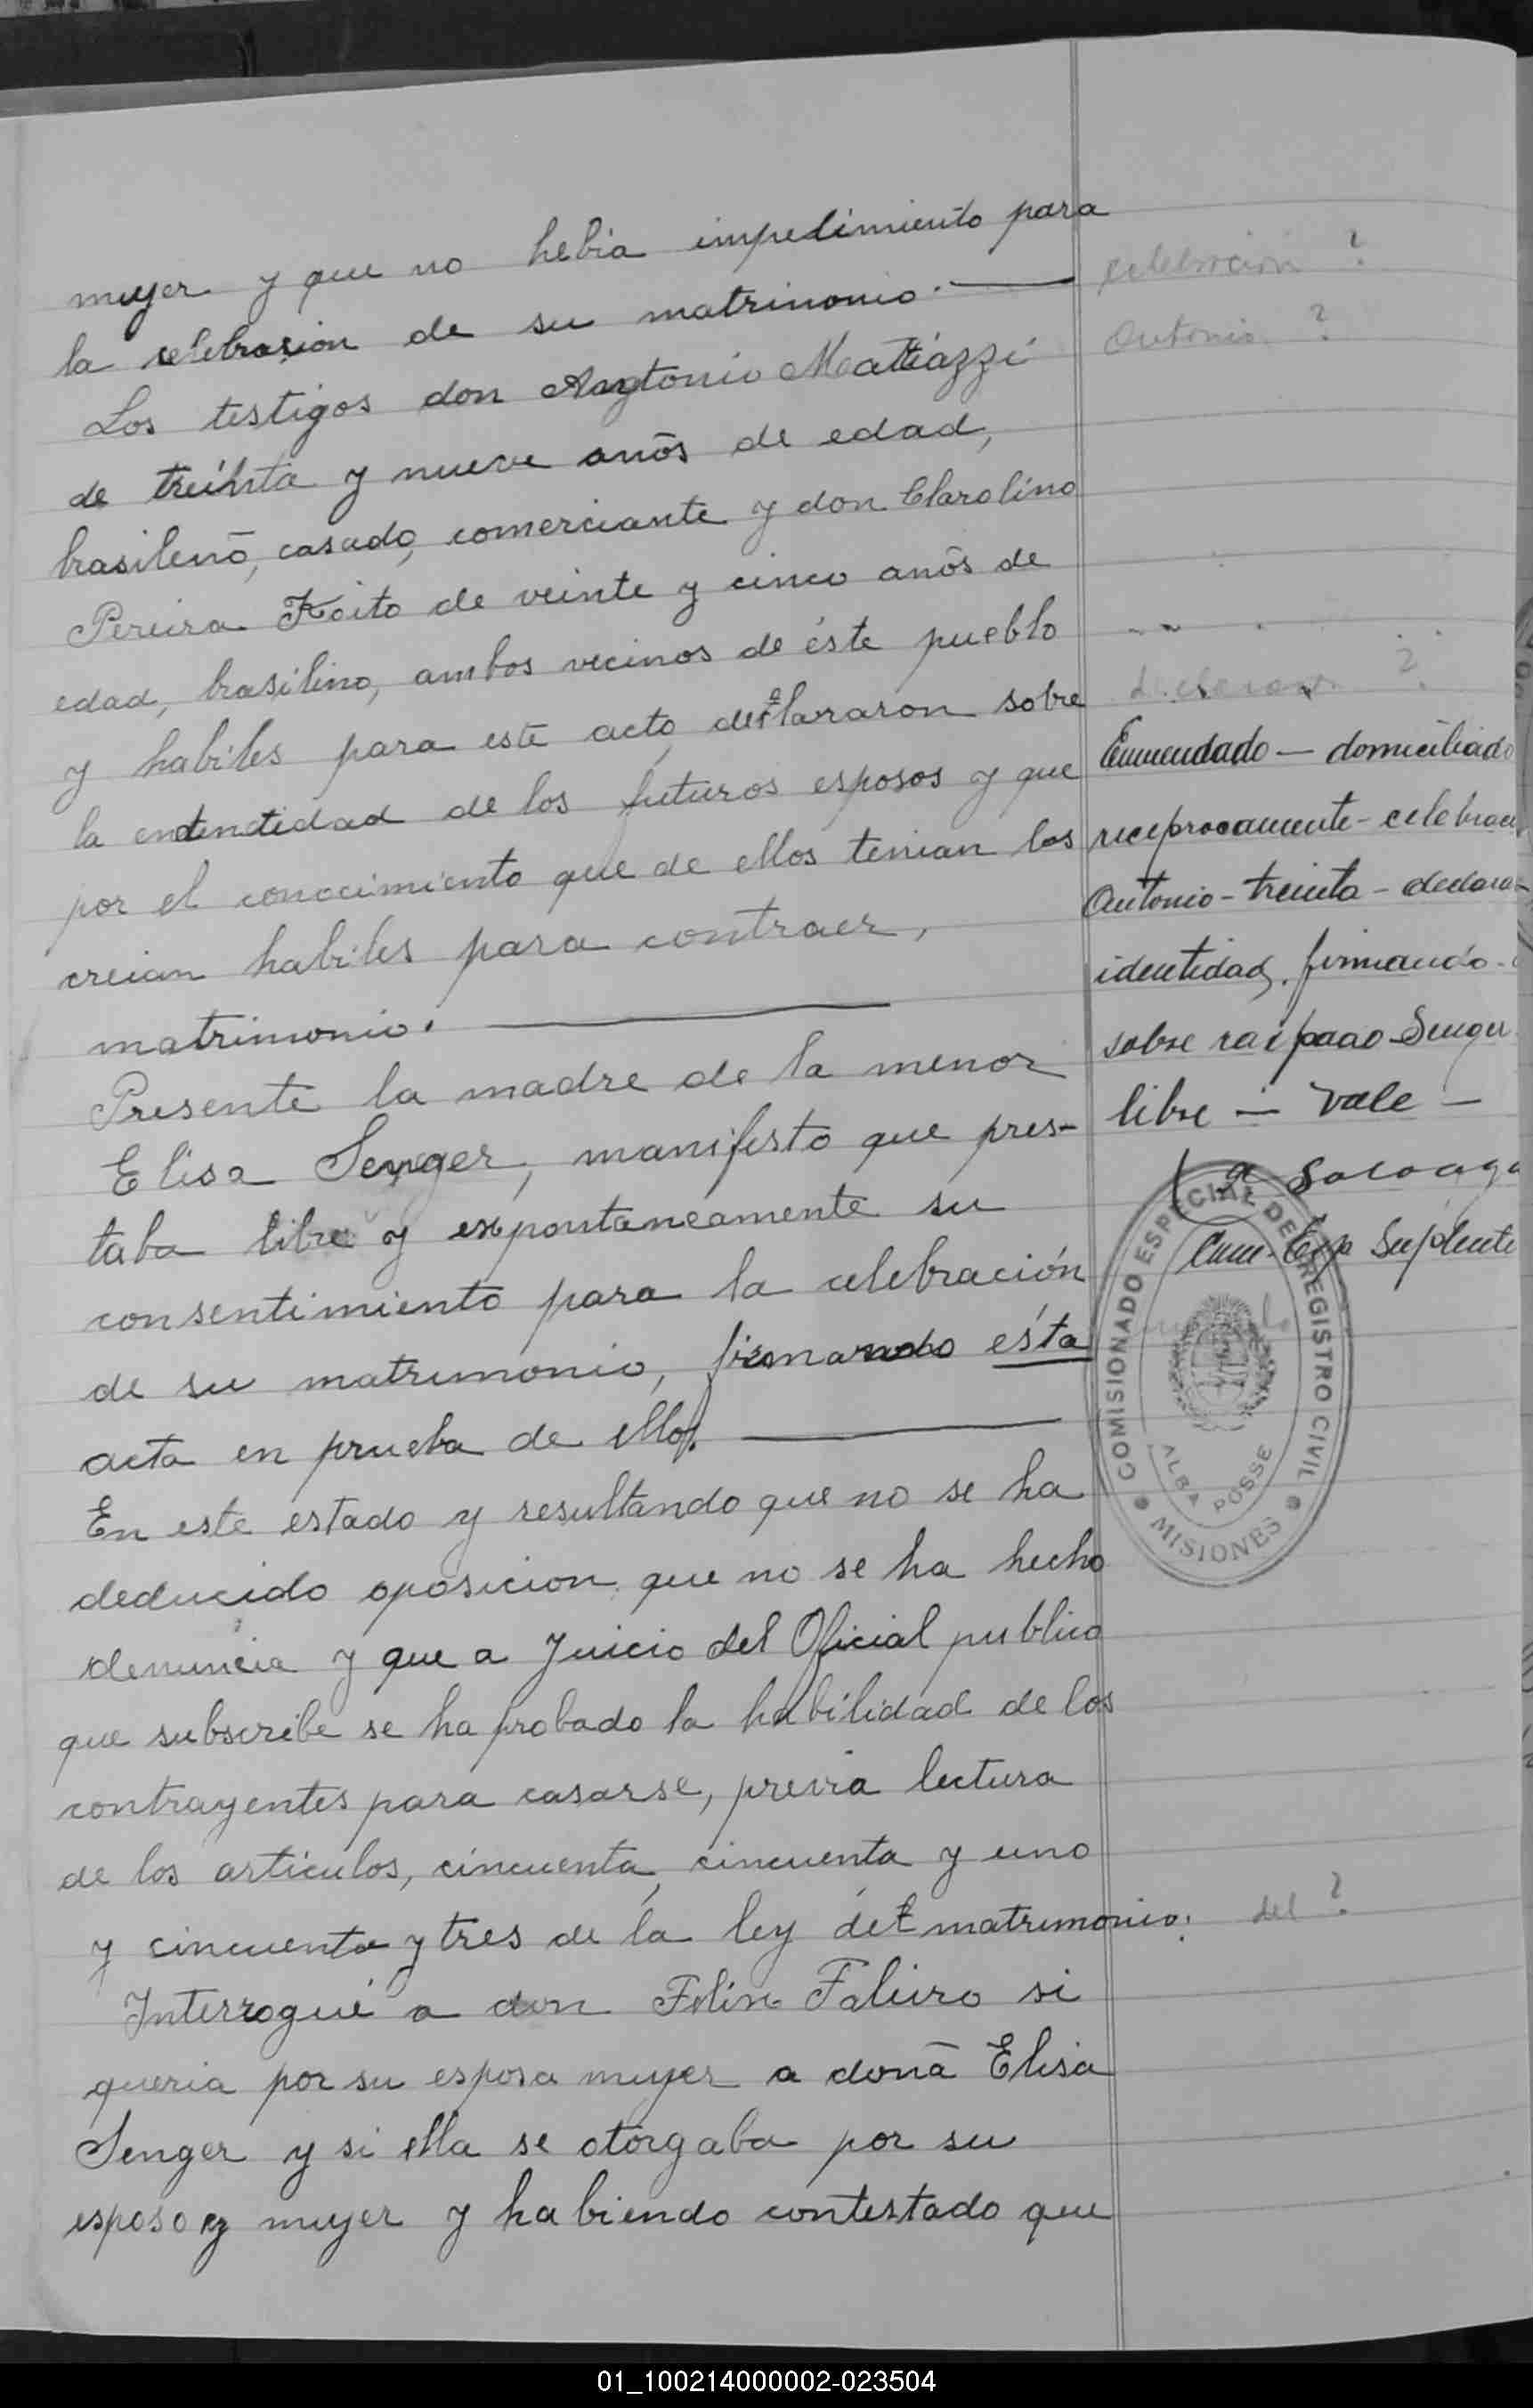 muyer y que no hebia impedimiento para
la celebracion de su matrimonio.
Los testigos don Angtonio Mattiazzi
de treinta y nueve anōs de edad,
brasilenō, casado, comerciante y don Clarolino
Pereira de veinte y cinco anōs de
edad, brasilino, ambos vecinos de éste pueblo
y habiles para este acto, declararon sobre
la endentidad de los futuros esposos y que
por el conocimiento que de ellos tenian los
creian habiles para contraer,
matrimonio.
Presente la madre de la menor
Elisa Senger, manifesto que pres-
taba libre y expontaneamente su
consentimiento para la celebración
de su matrimonio, firmando ésta
acta en prueba de ello.
En este estado y resultando que no se ha
deducido oposicion que no se ha hecho
denuncia y que a Juicio del Oficial publico
que subscribe se ha probado la habilidad de los
contrayentes para casarse, previa lectura
de los articulos, cincuenta, cincuenta y uno
y cincuenta y tres de la ley del matrimonio.
Interrogué a don Falino Faleiro si
queria por su esposa muyer a donā Elisa
Senger y si ella se otorgaba por su
esposo y muyer y habiendo contestado que
celebración ?
Antonio ?
declararon ?
Enmendado — domiciliado
reciprocamente - celebrac
Antonio - treinta - declara-
identidad. firmando -
sobre raspado Senger
libre — Vale —
Com. Esp Suplente
COMISIONADO ESPECIAL DE REGISTRO CIVIL
ALBA POSSE
MISIONES
del ?
01_100214000002-023504